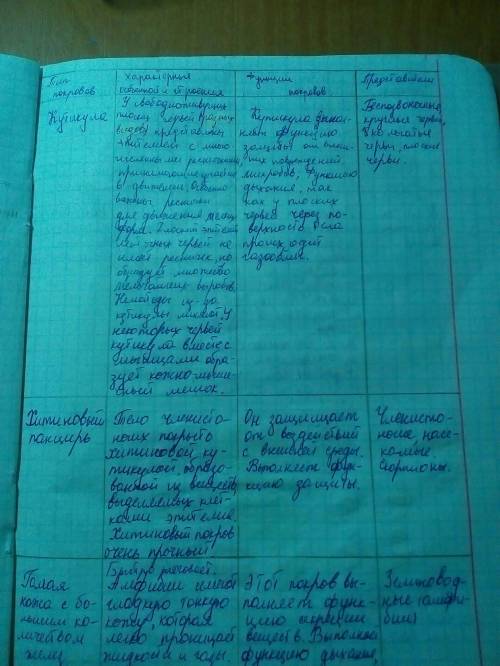 Тип покровов
Характерные особенности строения
Функции покровов
Представители
Кутикула
У свободноживущих
плоских червей
покровы представлены
эпителием с много-
численными ресничками,
принимающие участие
в движении. Особенно
важны реснички
для движения мелких
форм.
червей не
имеет ресничек, но
образует множество
мельчайших выростов
Нематоды из-за
кутикулы линяют. У
некоторых червей
кутикула вместе с
мышцами обра-
зует кожно-мыше-
чный мешок.
Кутикула выпол-
няет функцию
защиты от внеш-
них повреждений
микробов. Функцию
дыхания, так
как у плоских
червей через по-
верхность тела
происходит
газообмен.
Беспозвоночные,
круглые черви,
кольчатые
черви, плоские
черви.
Хитиновый
панцирь
Тело членисто-
ногих покрыто
хитиновой ку-
тикулой, образо-
ванной из веществ,
выделяемых клет-
ками эпителия.
Хитиновый покров
очень прочный.
Он защищает
от воздействий
с внешней среды.
Выполняет фун-
кцию защиты.
Членисто-
ногие, насе-
комые.
Скорпионы.
Голая
кожа с бо-
льшим ко-
личеством
желез
Амфибии имеют
гладкую тонкую
кожу, которая
легко пропускает
жидкости и газы.
Этот покров вы-
полняет функ-
цию
веществ. Выполняет
функцию дыхания
Земновод-
ные (амфи-
бии)